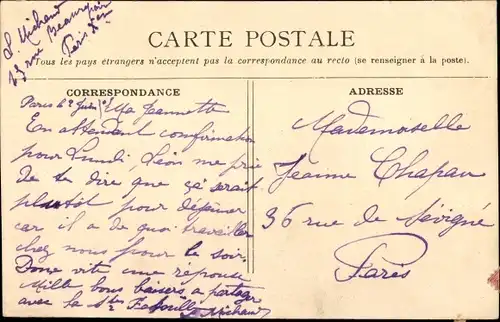 L. Michaud
23 rue Beaurepaire
Paris Xem
CARTE POSTALE
Tous les pays étrangers n'acceptent pas la correspondance au recto (se renseigner à la poste).
CORRESPONDANCE
Paris le 2 Ma Jeannette
En attendant confirmation
pour Lundi, Léon me prie
de te dire que ça serait
plutôt pour déjeuner
car il a de quoi travailler
chez nous pour le soir.
Donne vite une reponse
Mille bons baisers a partager
avec la
L. Michaud
ADRESSE
Mademoiselle
Jeanne Chapau
36 rue de Sévigné
Paris